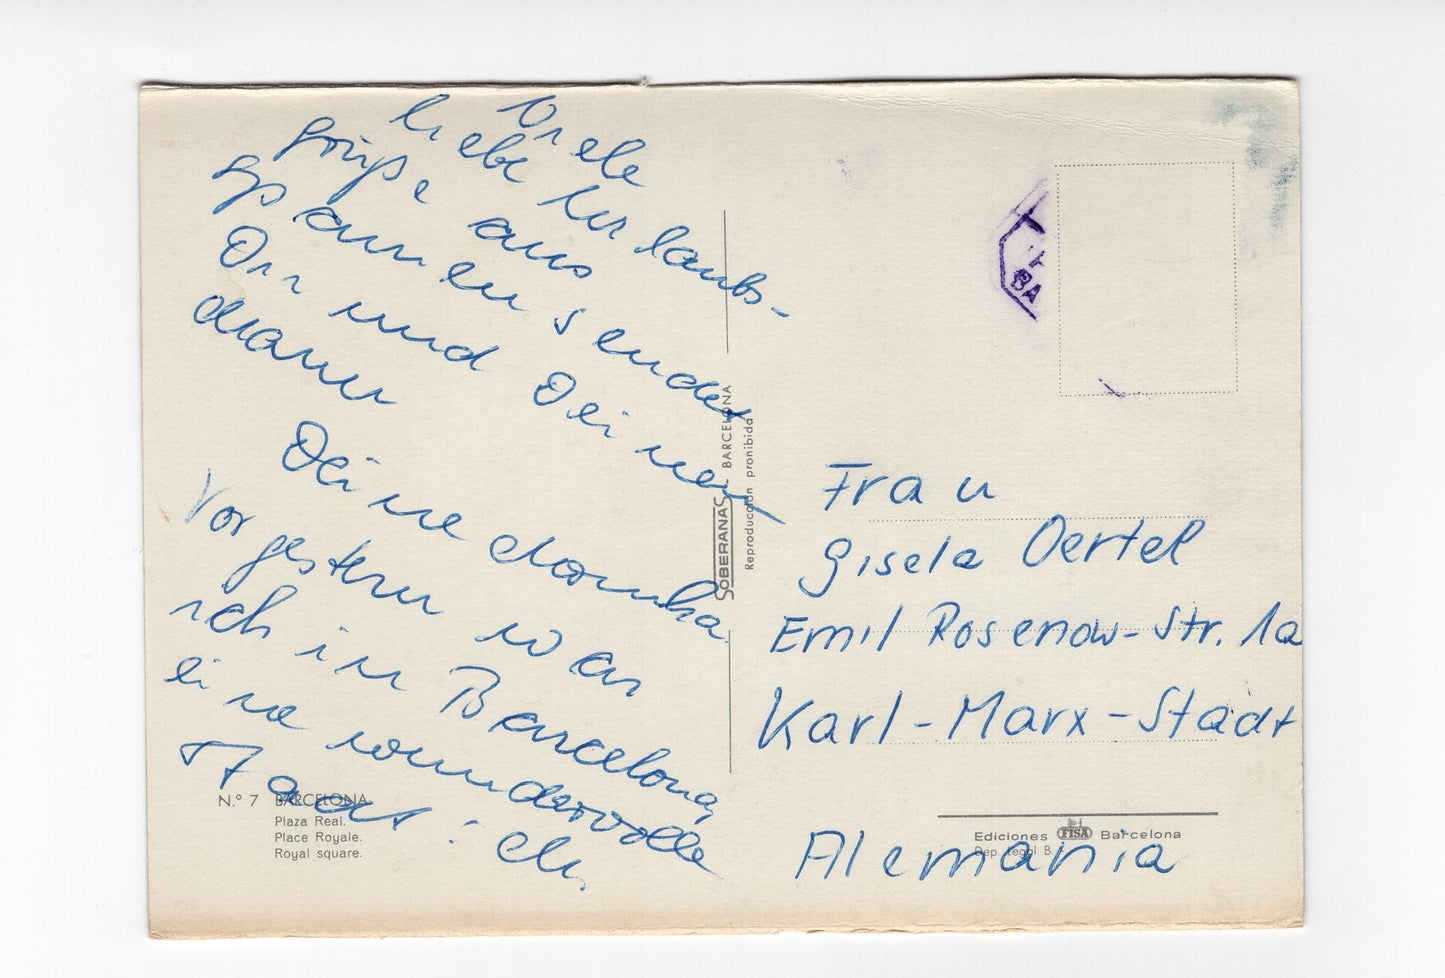 Viele
liebe Urlaubs-
grüße aus
Spanien sendet
Dir und Deinen
Deine
Vorgestern war
ich in Barcelona,
eine wundervolle
Stadt!
N.° 7 BARCELONA
Plaza Real.
Place Royale.
Royal square.
SOBERANAS - BARCELONA
Reproducción prohibida
BA
Frau
Gisela Oertel
Emil Rosenow-Str. 1a
Karl-Marx-Stadt
Alemania
Ediciones FISA Barcelona
Dep. Legal B.